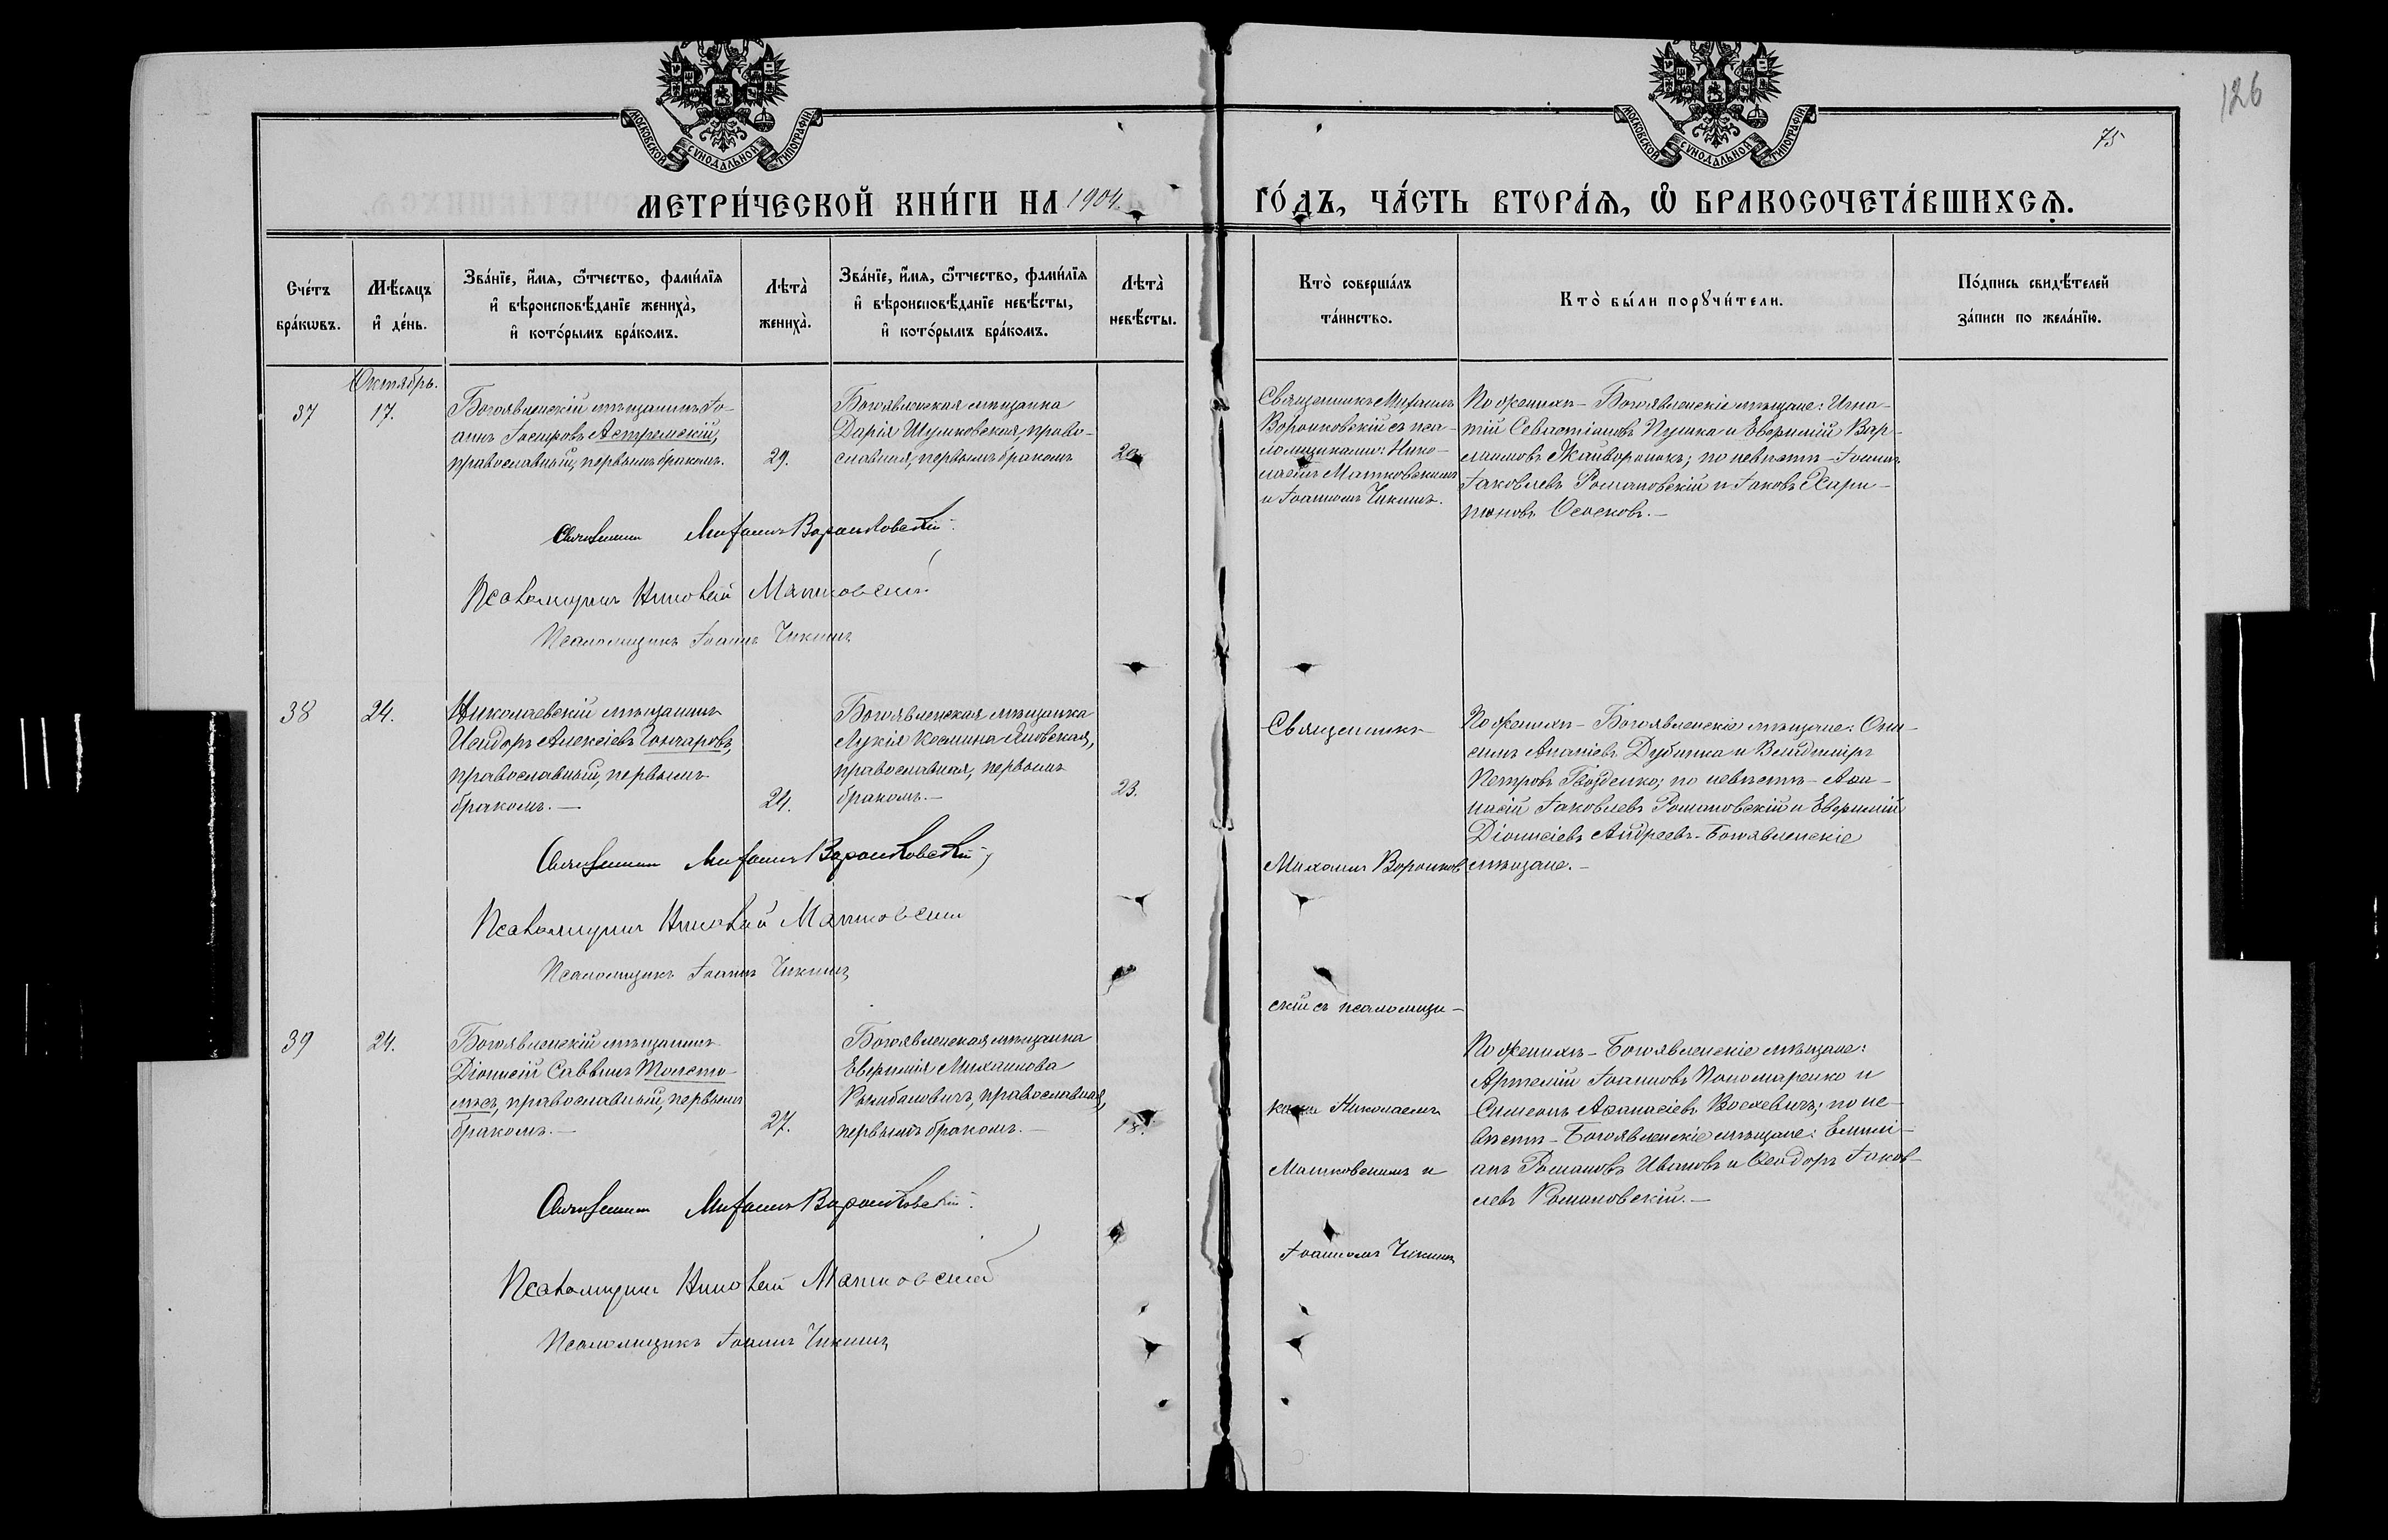 126
75
МОСКОВСКОЙ СѴНОДАЛЬНОЙ ТИПОГРАФІИ
МОСКОВСКОЙ СѴНОДАЛЬНОЙ ТИПОГРАФІИ
МЕТРИ́ЧЕСКОЙ КНИ́ГИ НА 1904
ГО́ДЪ, ЧА́СТЬ ВТОРА́Ѧ, Ѡ҆ БРАКОСОЧЕТА́ВШИХСѦ.
Сче́тъ
бра́кѡвъ.
Мѣ́сяцъ
и҆ де́нь.
Зва́нїе, и҆́мя, ѻ҆́тчество, фами́лїя
и҆ вѣроисповѣ́данїе жениха̀,
и҆ кото́рымъ бра́комъ.
Лѣта̀
жениха̀.
Зва́нїе, и҆́мя, ѻ҆́тчество, фами́лїя
и҆ вѣроисповѣ́данїе невѣ́сты,
и҆ кото́рымъ бра́комъ.
Лѣта̀
невѣ́сты.
Кто̀ соверша́лъ
та́инство.
Кто̀ бы́ли порꙋчи́тели.
По́дпись свидѣ́телей
за́писи по жела́нїю.
Октябрь.
37
17.
Богоявленскій мѣщанинъ Іо-
аннъ Іосифовъ Астремскій,
православный, первымъ бракомъ.
29.
Богоявленская мѣщанка
Дарія Шумковская, право-
славная, первымъ бракомъ
20
Священникъ Михаилъ
Воронковскій съ пса-
ломщиками: Нико-
лаемъ Матковскимъ
и Іоанномъ Чикинъ.
По женихѣ - Богоявленскіе мѣщане: Игна-
тій Севастіановъ Пушка и Евфимій Вар-
лаамовъ Жайворонокъ; по невѣстѣ - Іоаннъ
Іаковлевъ Романовскій и Іаковъ Хари-
тоновъ Ососковъ.-
Священникъ Михаилъ Воронковскій.
Псаломщикъ Николай Матковскій
Псаломщикъ Іоаннъ Чикинъ
38
24.
Николаевскій мѣщанинъ
Исидоръ Алексіевъ Гончаровъ,
православный, первымъ
бракомъ.-
24.
Богоявленская мѣщанка
Лукія Космина Яновская,
православная, первымъ
бракомъ.-
23.
Священникъ
Михаилъ Воронков
скій съ псаломщи-
ками Николаемъ
Матковскимъ и
Іоанномъ Чикинъ
По женихѣ - Богоявленскіе мѣщане: Они-
симъ Ананіевъ Дубинка и Владиміръ
Петровъ Гвозденко; по невѣстѣ - Аѳа-
насій Іаковлевъ Романовскій и Евфимій
Діонисіевъ Андреевъ - Богоявленскіе
мѣщане.-
Священникъ Михаилъ Воронковскій
Псаломщикъ Николай Матковскій
Псаломщикъ Іоаннъ Чикинъ
39
24.
Богоявленскій мѣщанинъ
Діонисій Саввинъ Толсто-
лѣсъ, православный, первымъ
бракомъ.-
27.
Богоявленская мѣщанка
Евфимія Михаилова
православная,
первымъ бракомъ.-
18.
По женихѣ - Богоявленскіе мѣщане:
Артемій Іоанновъ Пономаренко и
Симеонъ Аѳанасіевъ по не-
вѣстѣ - Богоявленскіе мѣщане: Емили-
анъ Романовъ Ивановъ и Ѳеодоръ Іаков-
левъ Романовскій.-
Священникъ Михаилъ Воронковскій.
Псаломщикъ Николай Матковскій
Псаломщикъ Іоаннъ Чикинъ